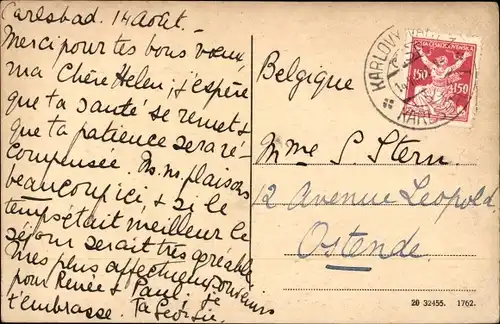 Carlsbad. 14 Août.
Merci pour tes bons vœux,
ma Chère Helen, j'espère
que ta santé se remet &
que ta patience sera ré-
compensée. Ns. ns. plaisons
beaucoup ici & si le
temps était meilleur le
séjour serait très agréable
Mes plus affectueux souvenirs
pour Renée & Paul. Je
t'embrasse. Ta
Belgique
Mme S. Stern
12 Avenue Léopold
Ostende
KARLOVY VARY
KARLSBAD
ČESKOSLOVENSKÁ
150 150
20 32455. 1762.